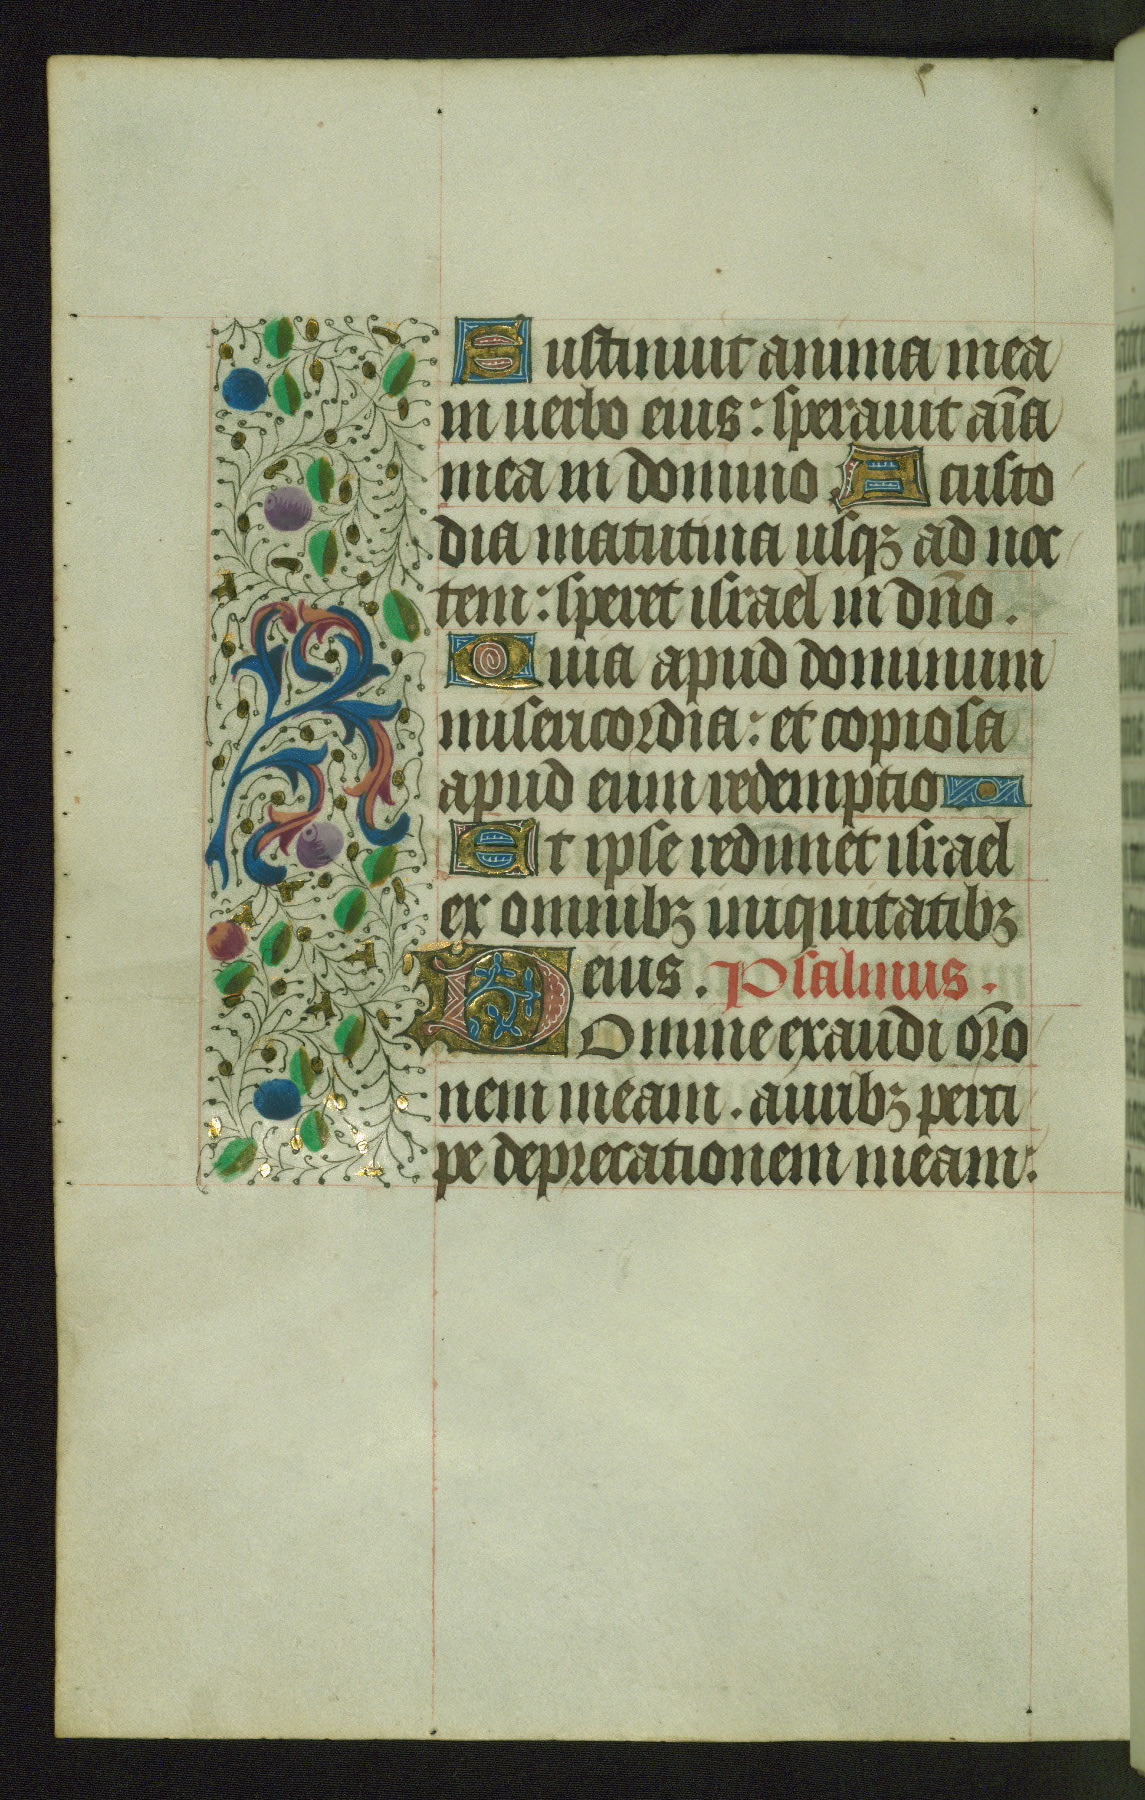 Sustinuit anima mea
in uerbo eius: sperauit aīa
mea in domino A custo
dia matutina usqꝫ ad noc
tem: speret israel in dn̄o.
Quia apud dominum
misericordia: et copiosa
apud eum redemptio
Et ipse redimet israel
ex omnibꝫ iniquitatibꝫ
eius. Psalmus.
Domine exaudi or̄o
nem meam. auribꝫ perci
pe deprecationem meam: